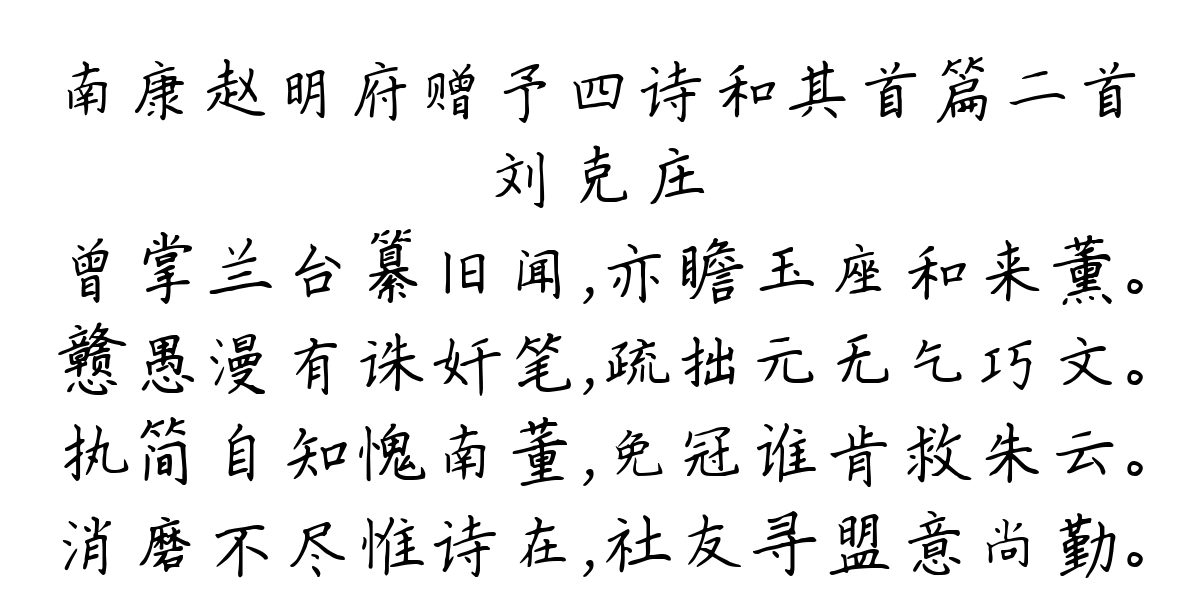 南康赵明府赠予四诗和其首篇二首
刘克庄
曾掌兰台纂旧闻,亦瞻玉座和来薰。
戆愚漫有诛奸笔,疏拙元无乞巧文。
执简自知愧南董,免冠谁肯救朱云。
消磨不尽惟诗在,社友寻盟意尚勤。